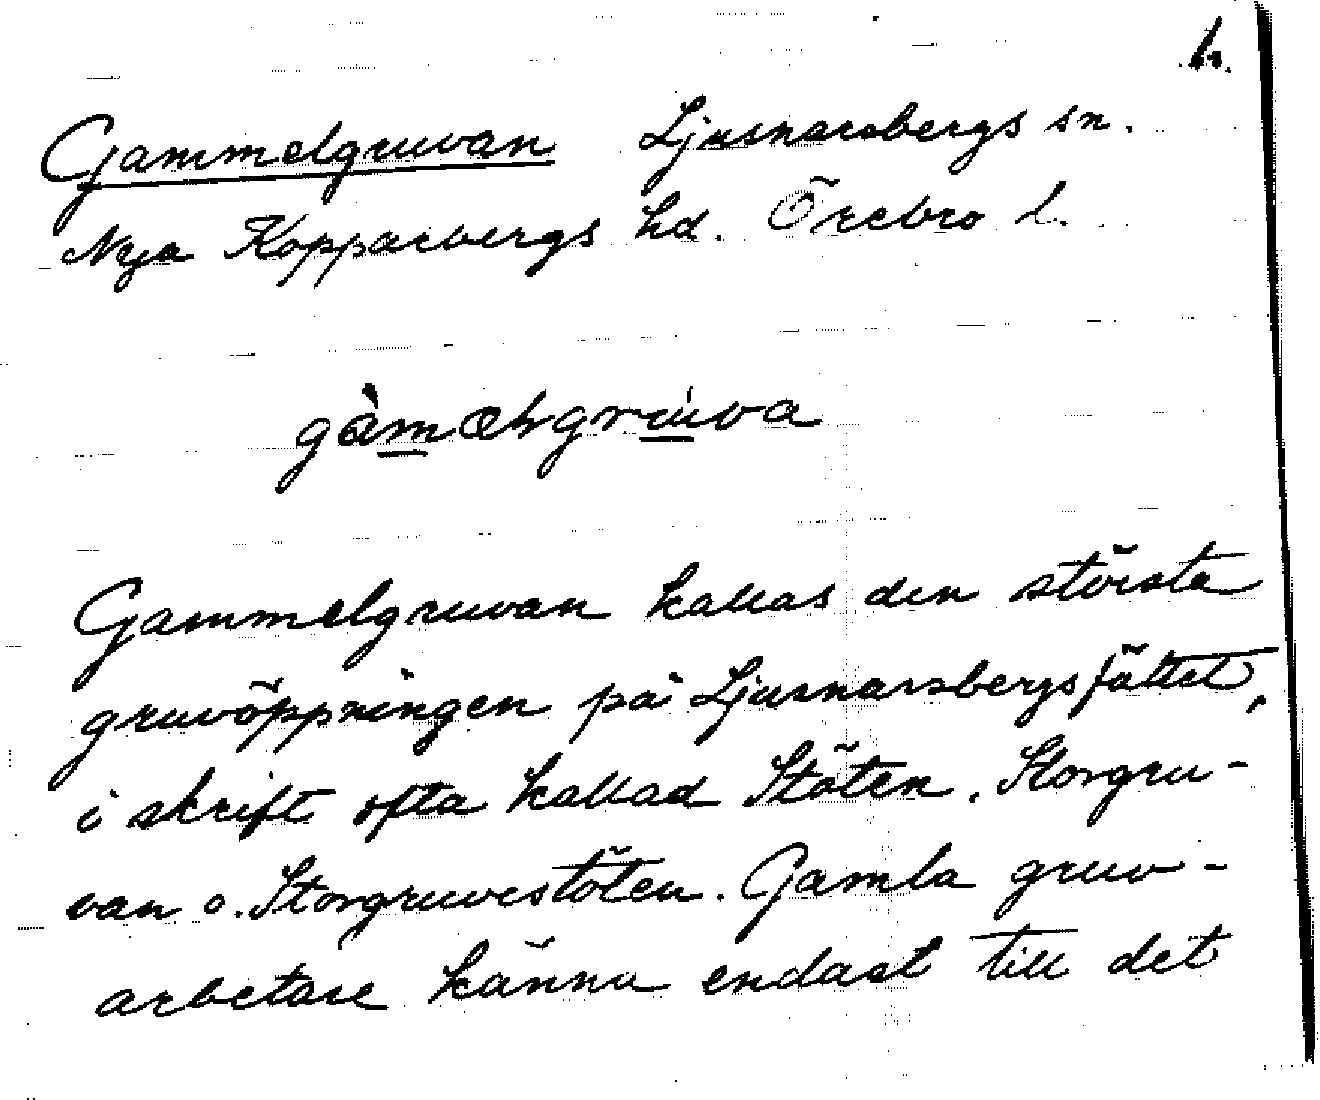 1.
Gammelgruvan Ljusnarsbergs sn.
Nya Kopparbergs hd. Örebro l.
Gammelgruvan kallas den största
gruvöppningen på Ljusnarsbergsfältet,
i skrift ofta kallad Stöten, Storgru-
van o. Storgruvestöten. Gamla gruv-
arbetare känna endast till det